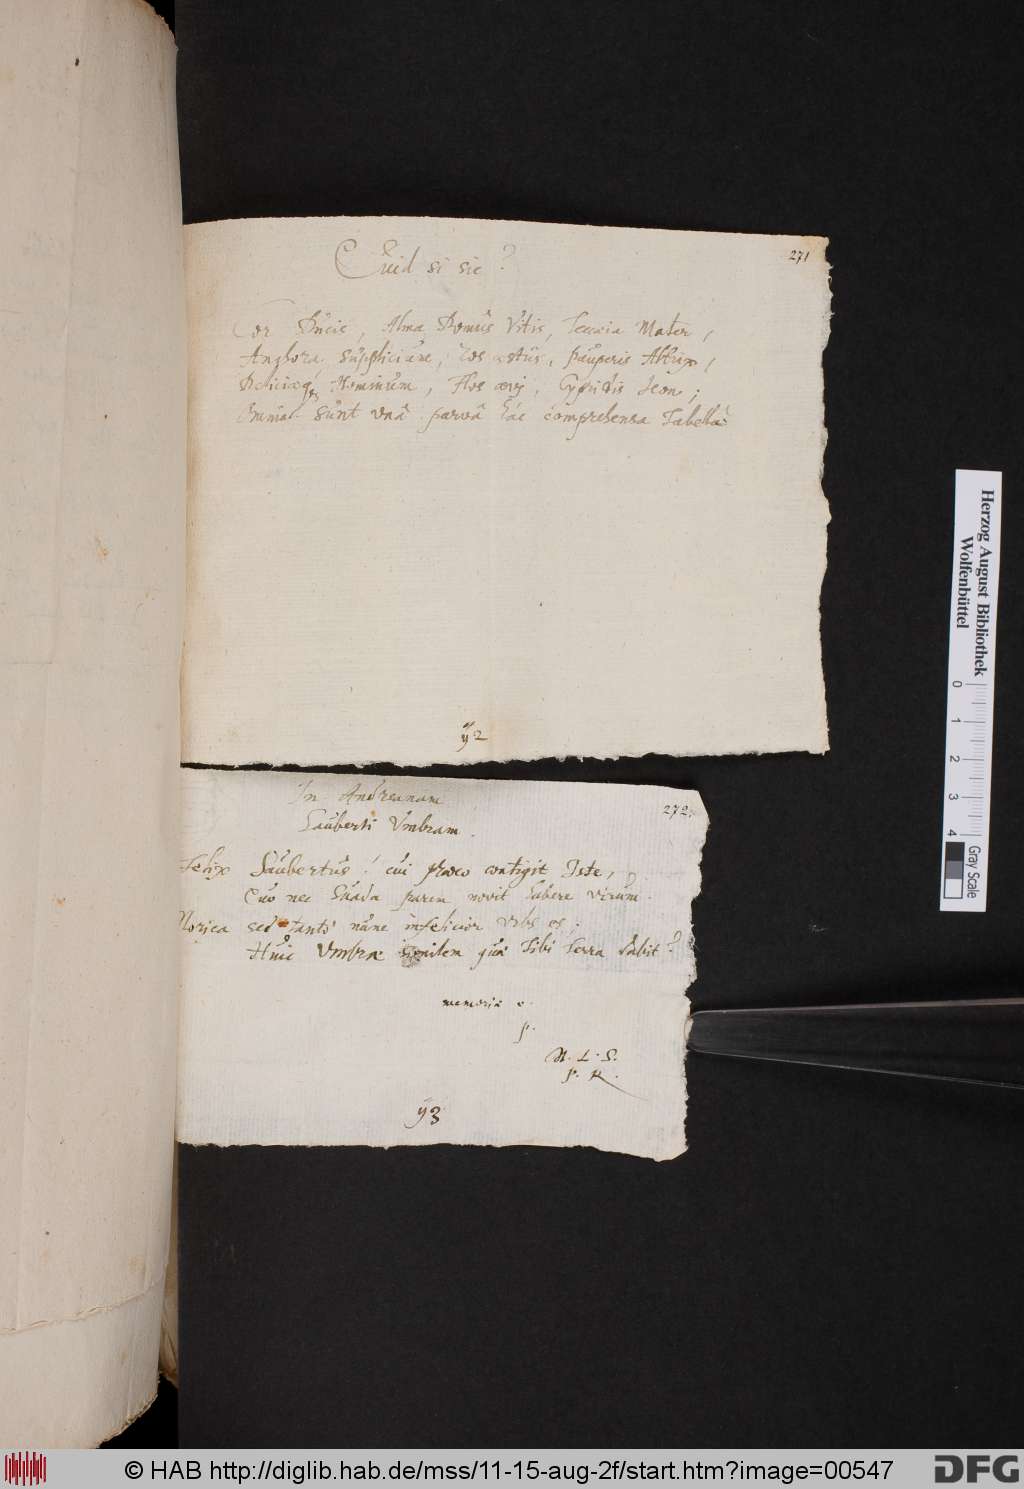 271
Quid si sic?
Cor Ducis, Alma Domus Vitis, Mater,
Anchora Supplicium, Ros æstus, pauperis Altrix,
Deliciæq3 Hominum, Flos ævj, Cypridis Leon;
Omnia sunt unâ parvâ hâc comprehensa Tabellâ.
ÿ2
272.
In Andreanam
Sauberti Umbram.
Felix Saubertus! cui præco contigit Iste,
Quo nec Suada parem novit habere virum.
Norica sed tantò nunc infelicior Urbs es;
Huic Umbræ similem quæ Tibi Terra dabit?
memoriæ e.
p.
M. L. S.
P. R.
ÿ3
Herzog August Bibliothek
Wolfenbüttel
0 1 2 3 4
Gray Scale
© HAB http://diglib.hab.de/mss/11-15-aug-2f/start.htm?image=00547
DFG